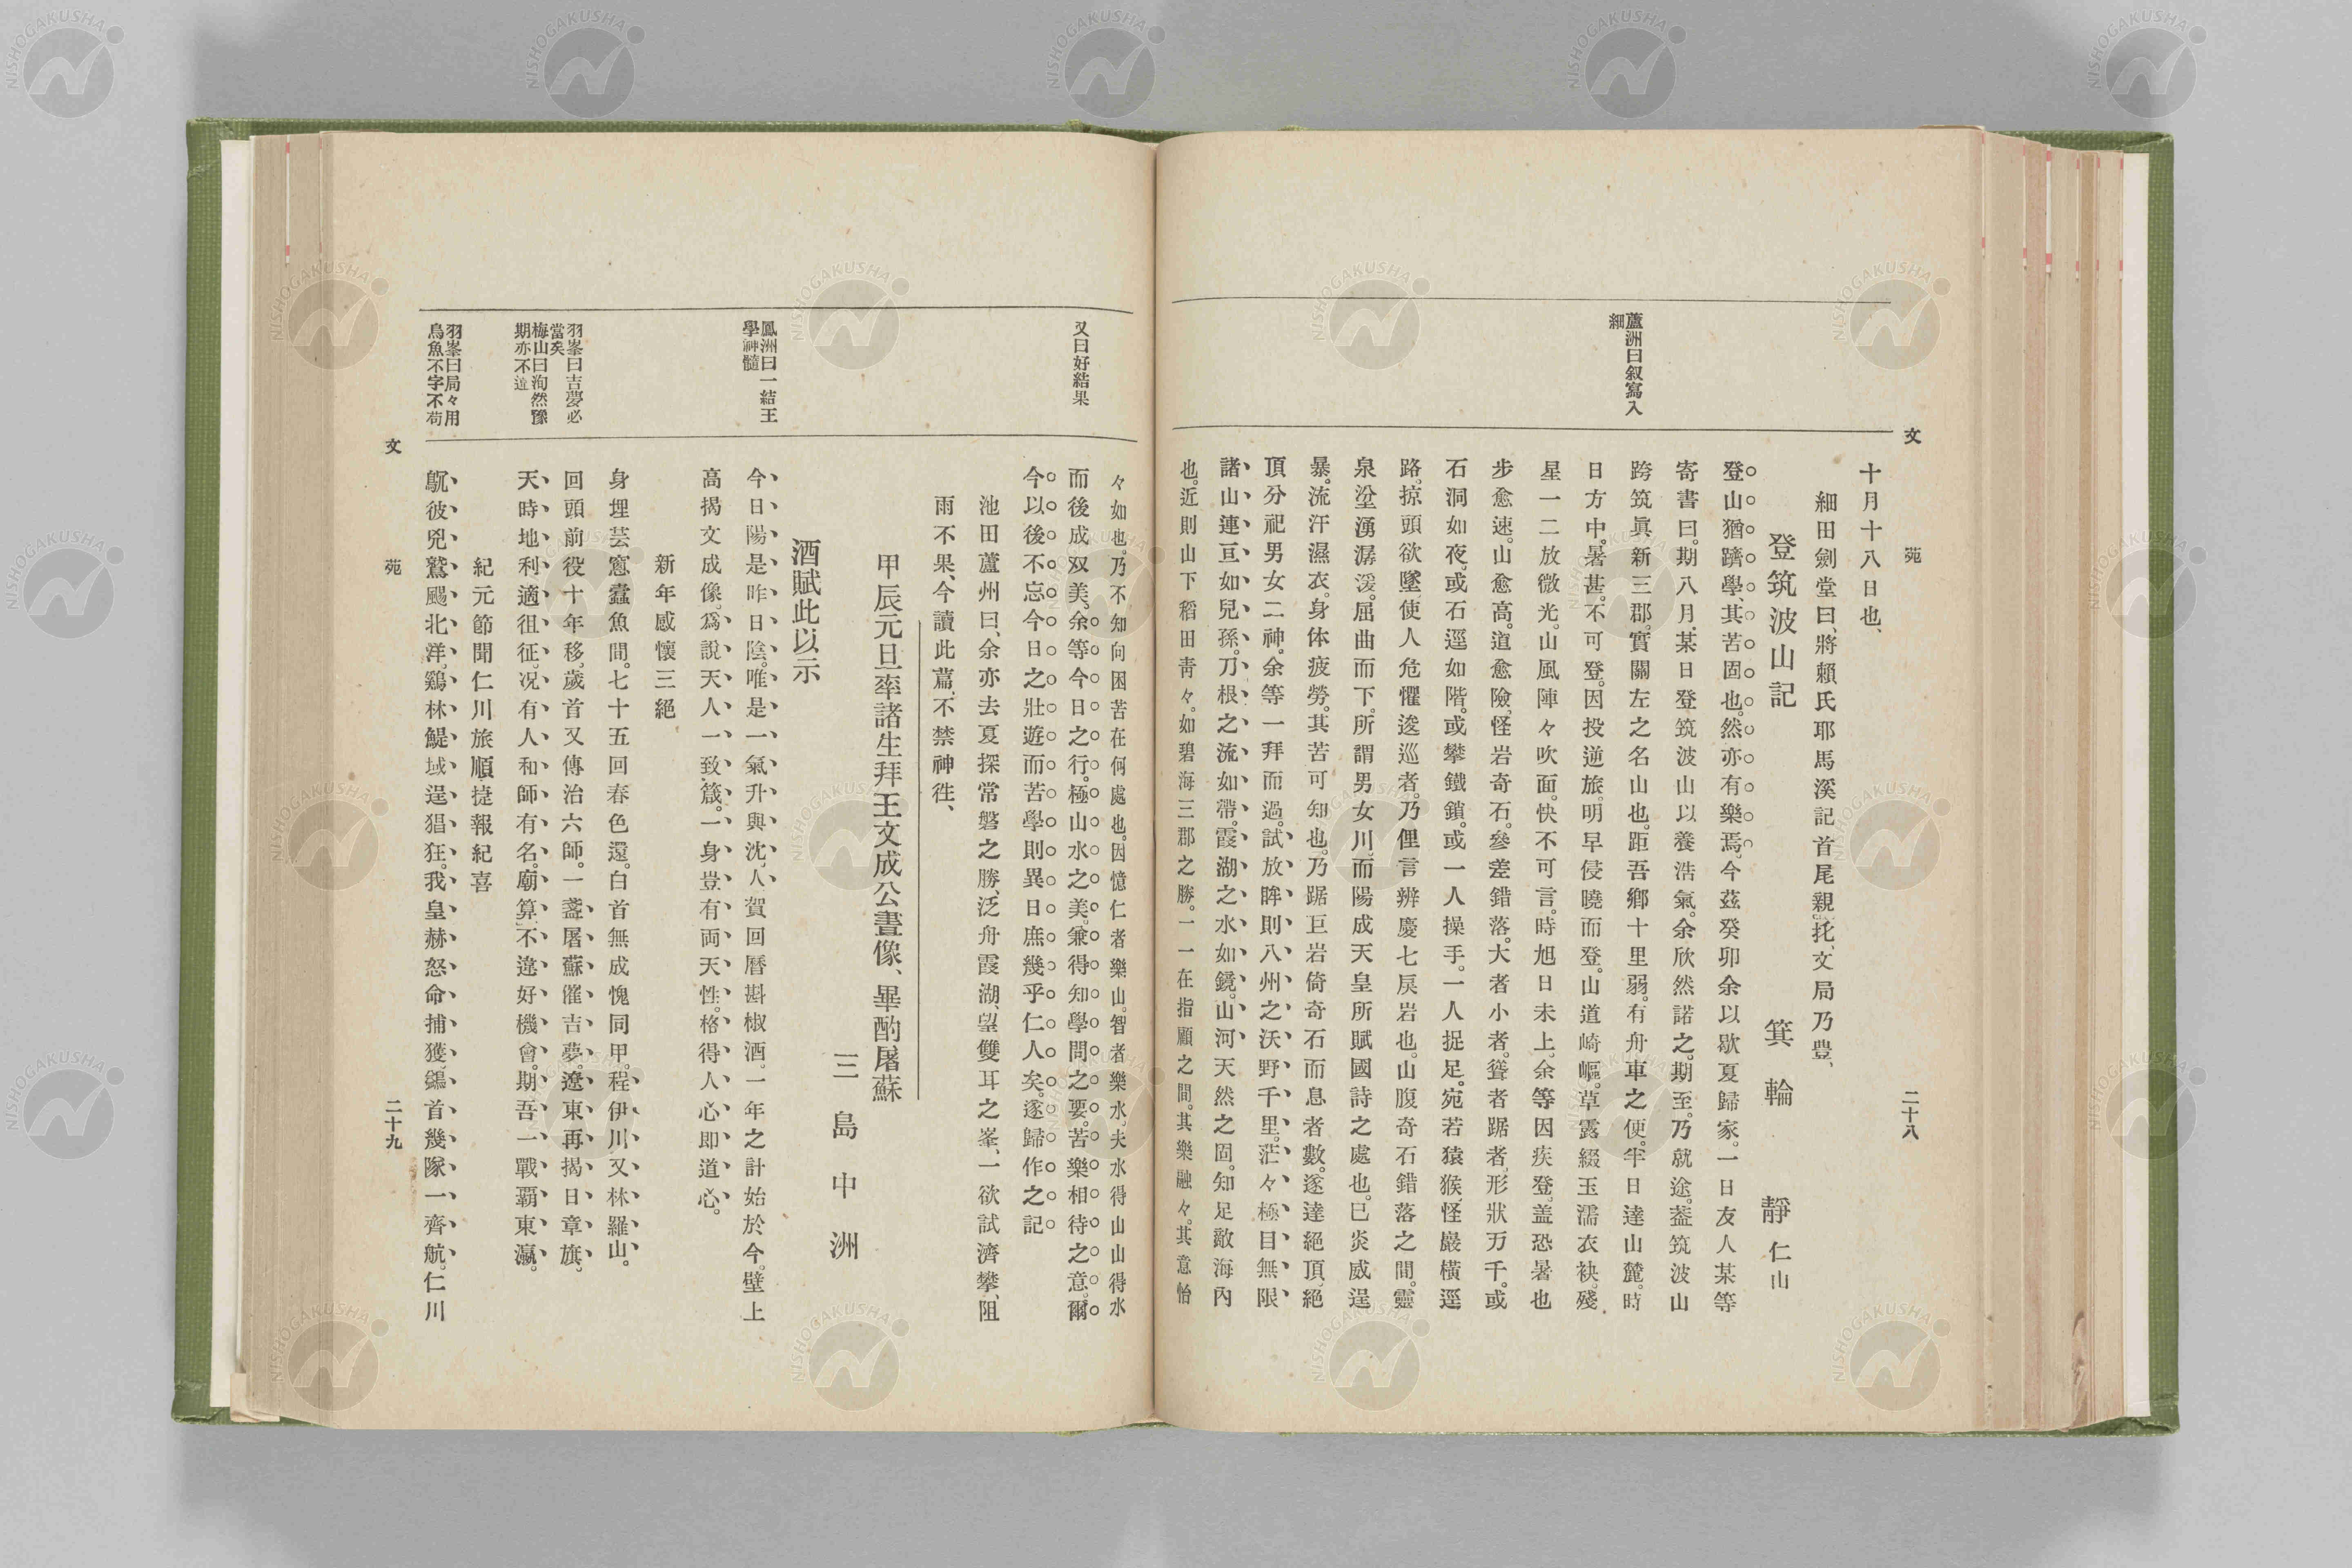 文
苑
二十八
蘆洲曰叙寫入
細
十月十八日也、
細田劍堂曰、將頼氏耶馬溪記首尾親托、文局乃豊、
登筑波山記
箕輪 靜仁山
登山猶躋學、其苦固也。然亦有樂焉、今茲癸卯余以歇夏歸家。一日友人某等
寄書曰。期八月某日登筑波山以養浩氣。余欣然諾之。期至。乃就途。葢筑波山
跨筑眞新三郡。實關左之名山也。距吾鄉十里弱。有舟車之便。半日達山麓。時
日方中。暑甚。不可登。因投逆旅。明早侵曉而登。山道崎嶇。草露綴玉濡衣袂。殘
星一二放微光。山風陣々吹面。快不可言。時旭日未上。余等因疾登。盖恐暑也
步愈速。山愈高。道愈險、怪岩奇石。參差錯落。大者小者。聳者踞者、形狀万千。或
石洞如夜、或石逕如階。或攀鐵鎖。或一人操手。一人捉足。宛若猿猴、怪巖橫逕
路。掠頭欲墜、使人危懼逡巡者。乃俚言辨慶七戾岩也。山腹奇石錯落之間。靈
泉坌湧潺湲。屈曲而下。所謂男女川、而陽成天皇所賦國詩之處也。巳炎威逞
暴。流汗濕衣。身体疲勞。其苦可知也。乃踞巨岩倚奇石而息者數。遂達絕頂、絕
頂分祀男女二神。余等一拜而過。試放眸、則八州之沃野千里。茫々極目無限
諸山連亘如兒孫。刀根之流如帶。霞湖之水如鏡。山河天然之固。知足敵海內
也。近則山下稻田靑々。如碧海三郡之勝。一一在指顧之間。其樂融々。其意怡
又曰好結果
鳳洲曰一結王
學神髓
羽峯曰吉夢必
當矣
梅山曰洵然豫
期亦不違
羽峯曰局々用
鳥魚不字不苟
々如也。乃不知向困苦在何處也。因憶仁者樂山。智者樂水。夫水得山山得水
而後成双美。余等今日之行。極山水之美。兼得知學問之要。苦樂相待之意。爾
今以後不忘今日之壯遊而苦學則異日庶幾乎仁人矣。遂歸作之記
池田蘆州曰、余亦去夏探常磐之勝、泛舟霞湖、望雙耳之峯、一欲試濟攀、阻
雨不果、今讀此篇、不禁神徃、
甲辰元旦率諸生拜王文成公畫像、畢酌屠蘇
三島中洲
酒賦此以示
今日陽是昨日陰。唯是一氣升與沈、人賀回曆斟椒酒。一年之計始於今。壁上
高揭文成像。爲說天人一致箴。一身豈有両天性。格得人心即道心。
新年感懷三絕
身埋芸窻蠧魚間。七十五回春色還。白首無成愧同甲。程伊川又林羅山。
回頭前役十年移、歲首又傳治六師。一盞屠蘇催吉夢。遼東再揭日章旗。
天時地利適徂征。况有人和師有名。廟算不違好機會。期吾一戰覇東瀛。
紀元節聞仁川旅順捷報紀喜
翫彼兇鷲颺北洋。鷄林鯷域逞猖狂。我皇赫怒命捕獲。鷁首幾隊一齊航。仁川
文
苑
二十九